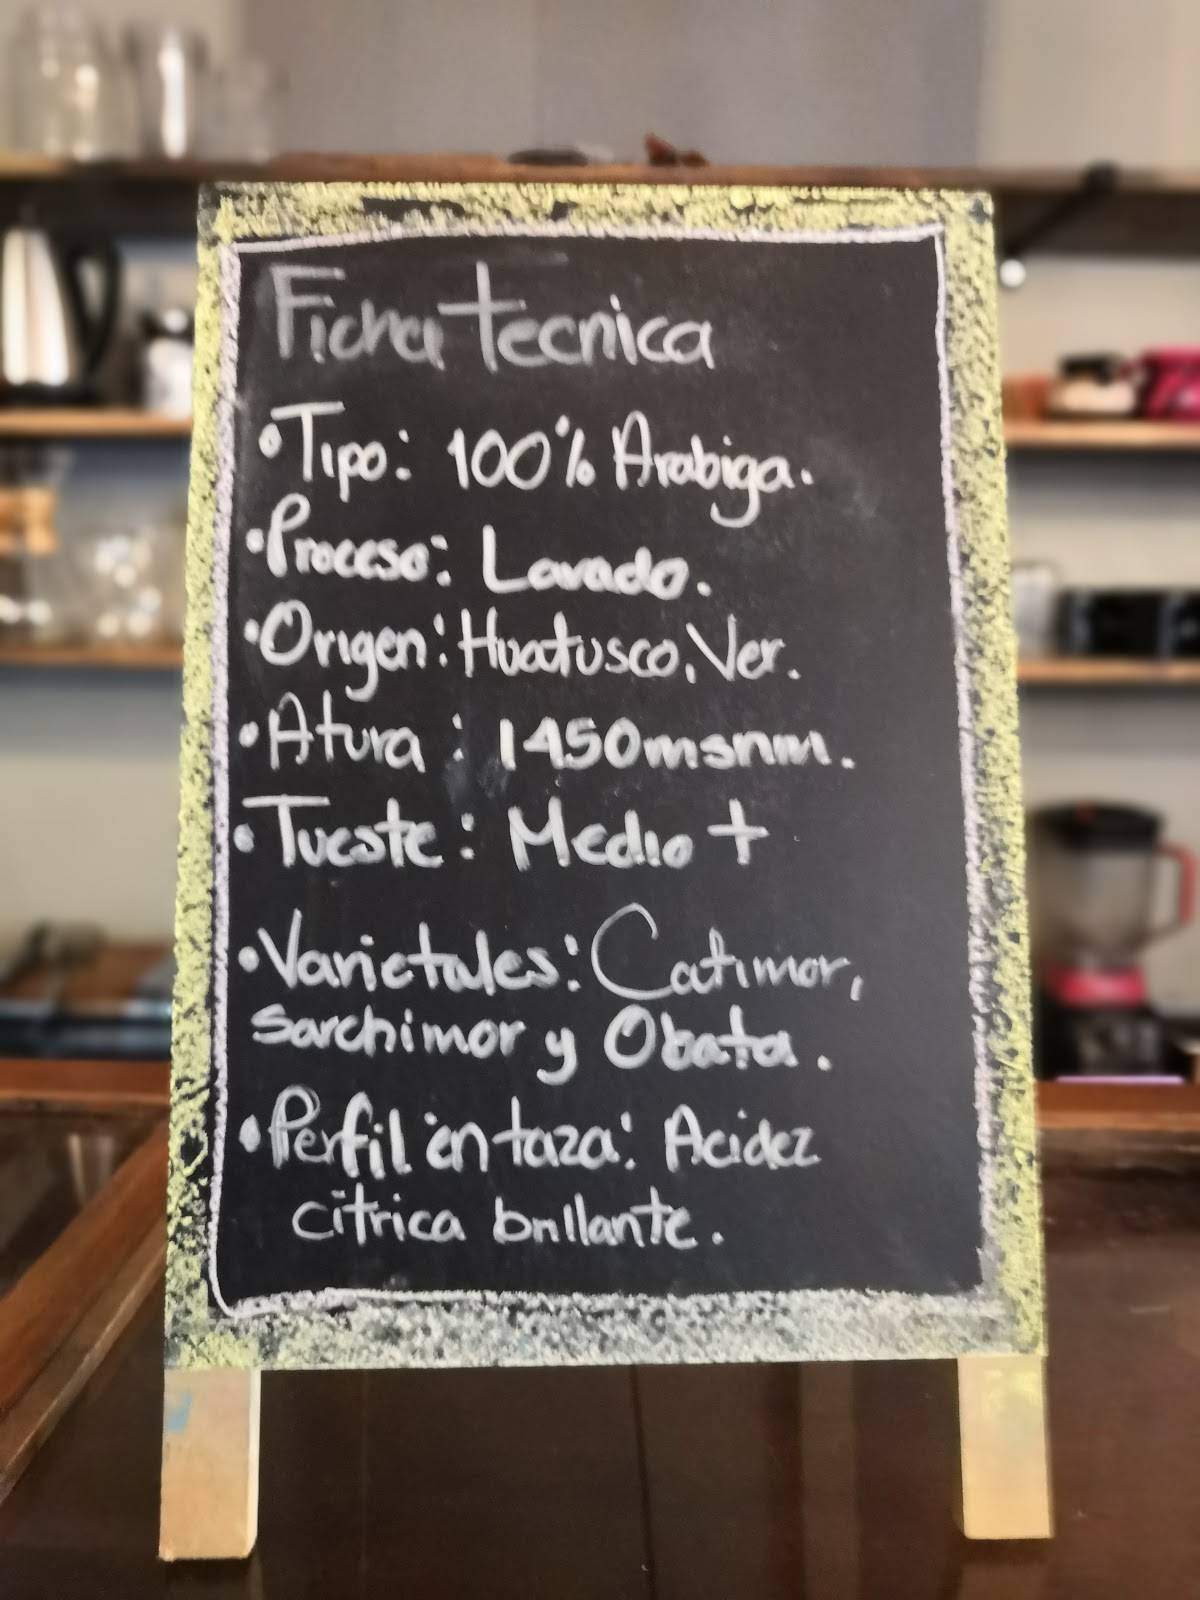 Ficha Tecnica
• Tipo: 100% Arabiga.
• Proceso: Lavado.
• Origen: Huatusco, Ver.
• Atura: 1450msnm.
• Tueste: Medio +
• Varietales: Catimor,
Sarchimor y Obata.
• Perfil en taza: Acidez
cítrica brillante.